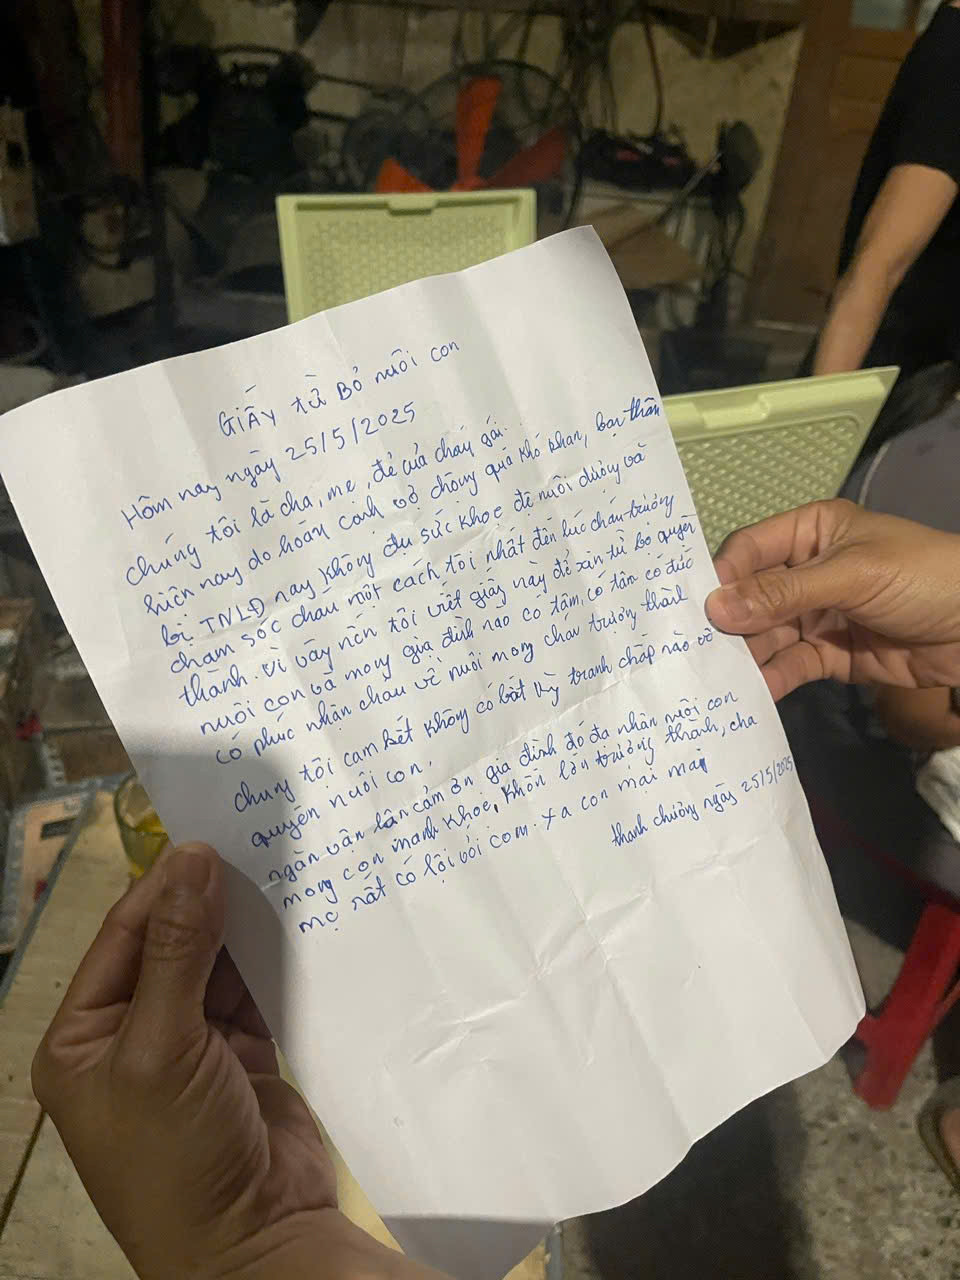 Giấy từ Bỏ nuôi con
Hôm nay ngày 25/5/2025
chúng tôi là cha, mẹ, đẻ của cháu gái.
hiện nay do hoàn cảnh vợ chồng quá khó khăn, bạn thân
bị TNLĐ nay không đủ sức khoẻ để nuôi dưỡng và
chăm sóc cháu một cách tôi nhất đến lúc cháu trưởng
thành. vì vậy nên tôi viết giấy này để xin từ bỏ quyền
nuôi con và mong gia đình nào có tâm, có tầm có đức
có phúc nhận cháu về nuôi mong cháu trưởng thành
chúng tôi cam kết không có bất kỳ tranh chấp nào về
quyền nuôi con.
ngàn vàn lần cảm ơn gia đình đó đã nhận nuôi con
mong con mạnh khoẻ, khôn lớn trưởng thành, cha
mẹ rất có lội với con. xa con mại mại
thanh chương ngày 25/5/2025